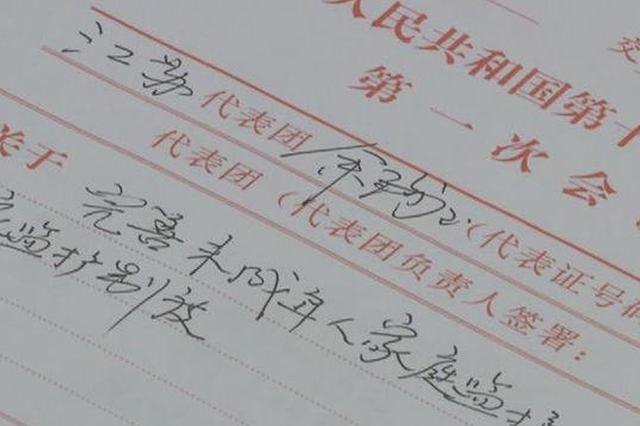 人民共和国第十
交
第一次会
江苏代表团 (代表证号
代表团(代表团负责人签署:
关于 完善未成年人家庭监护
监护制度